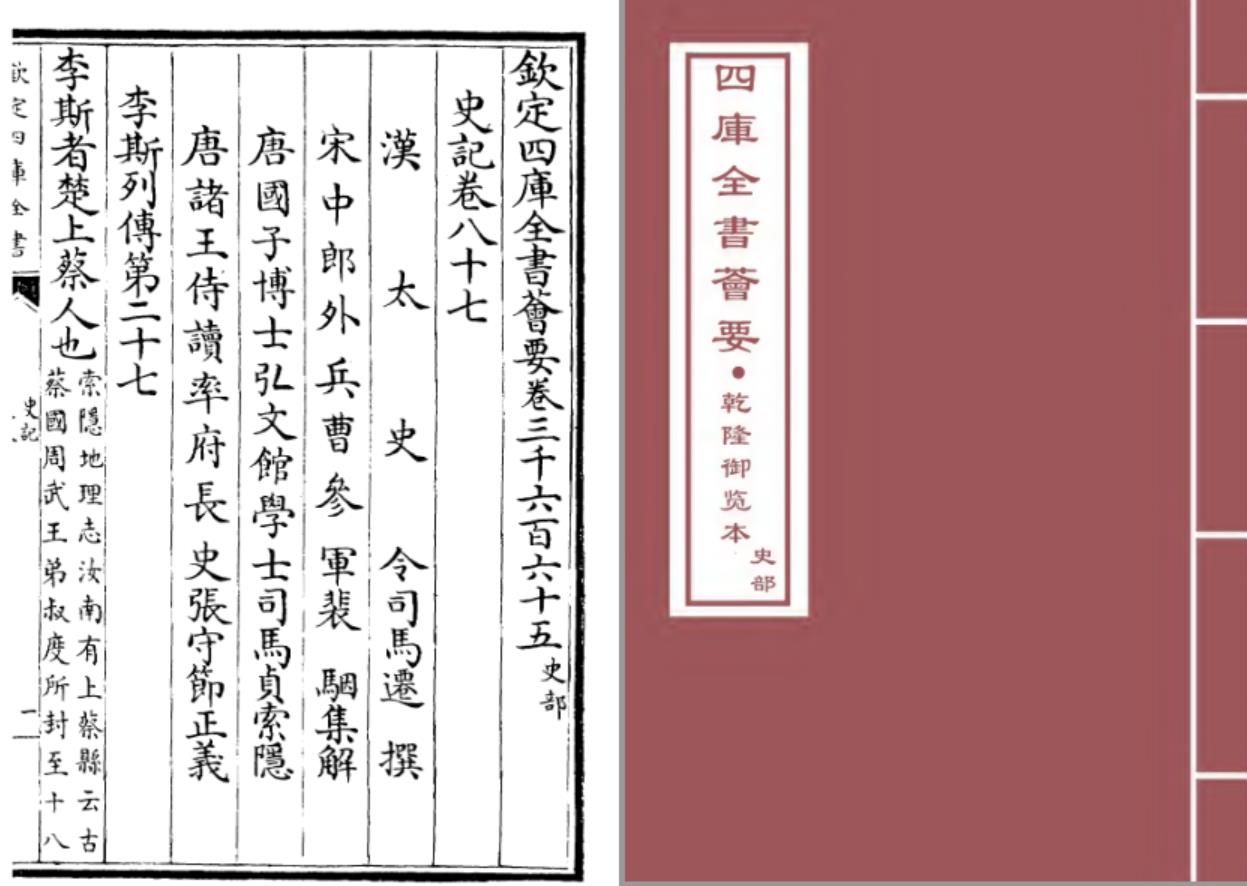 欽定四庫全書薈要卷三千六百六十五史部
史記卷八十七
漢太史令司馬遷撰
宋中郎外兵曹參軍裴駰集解
唐國子博士弘文館學士司馬貞索隱
唐諸王侍讀率府長史張守節正義
李斯列傳第二十七
李斯者楚上蔡人也
索隱地理志汝南有上蔡縣云古
蔡國周武王弟叔度所封至十八
欽定四庫全書
史記
一
四庫全書薈要•乾隆御览本
史部